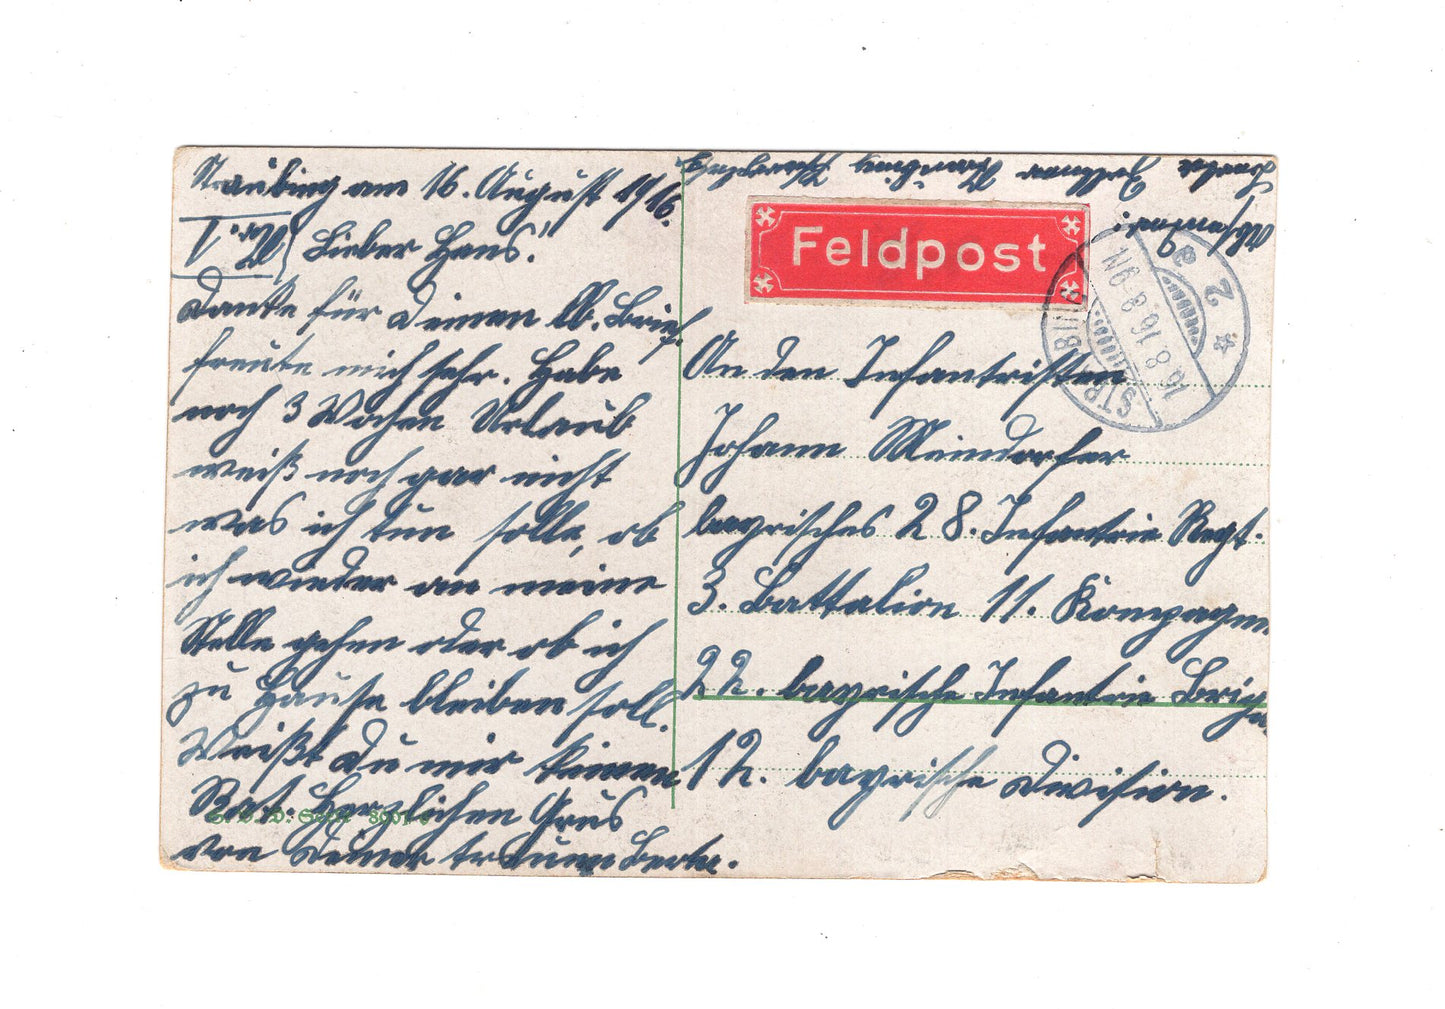 Straubing am 16. August 1916.
Nr. 1
Lieber Hans!
Danke für Deinen lb. Brief.
freute mich sehr. Habe
noch 3 Wochen Urlaub
weiß noch gar nicht
was ich tun solle, ob
ich wieder an meine
Stelle gehen oder ob ich
zu Hause bleiben soll.
Weißt Du mir keinen
Rat. Herzlichen Grus
von Deiner treuen Berta.
Feldpost
STRAUBING 2
16.8.16.8-9N.
Absender:
An den Infantristen
Johann Meindorfer
bayrisches 28. Infantrie Regt.
3. Battalion 11. Kompagnie
22. bayrische Infantrie Briga
12. bayrische Division.